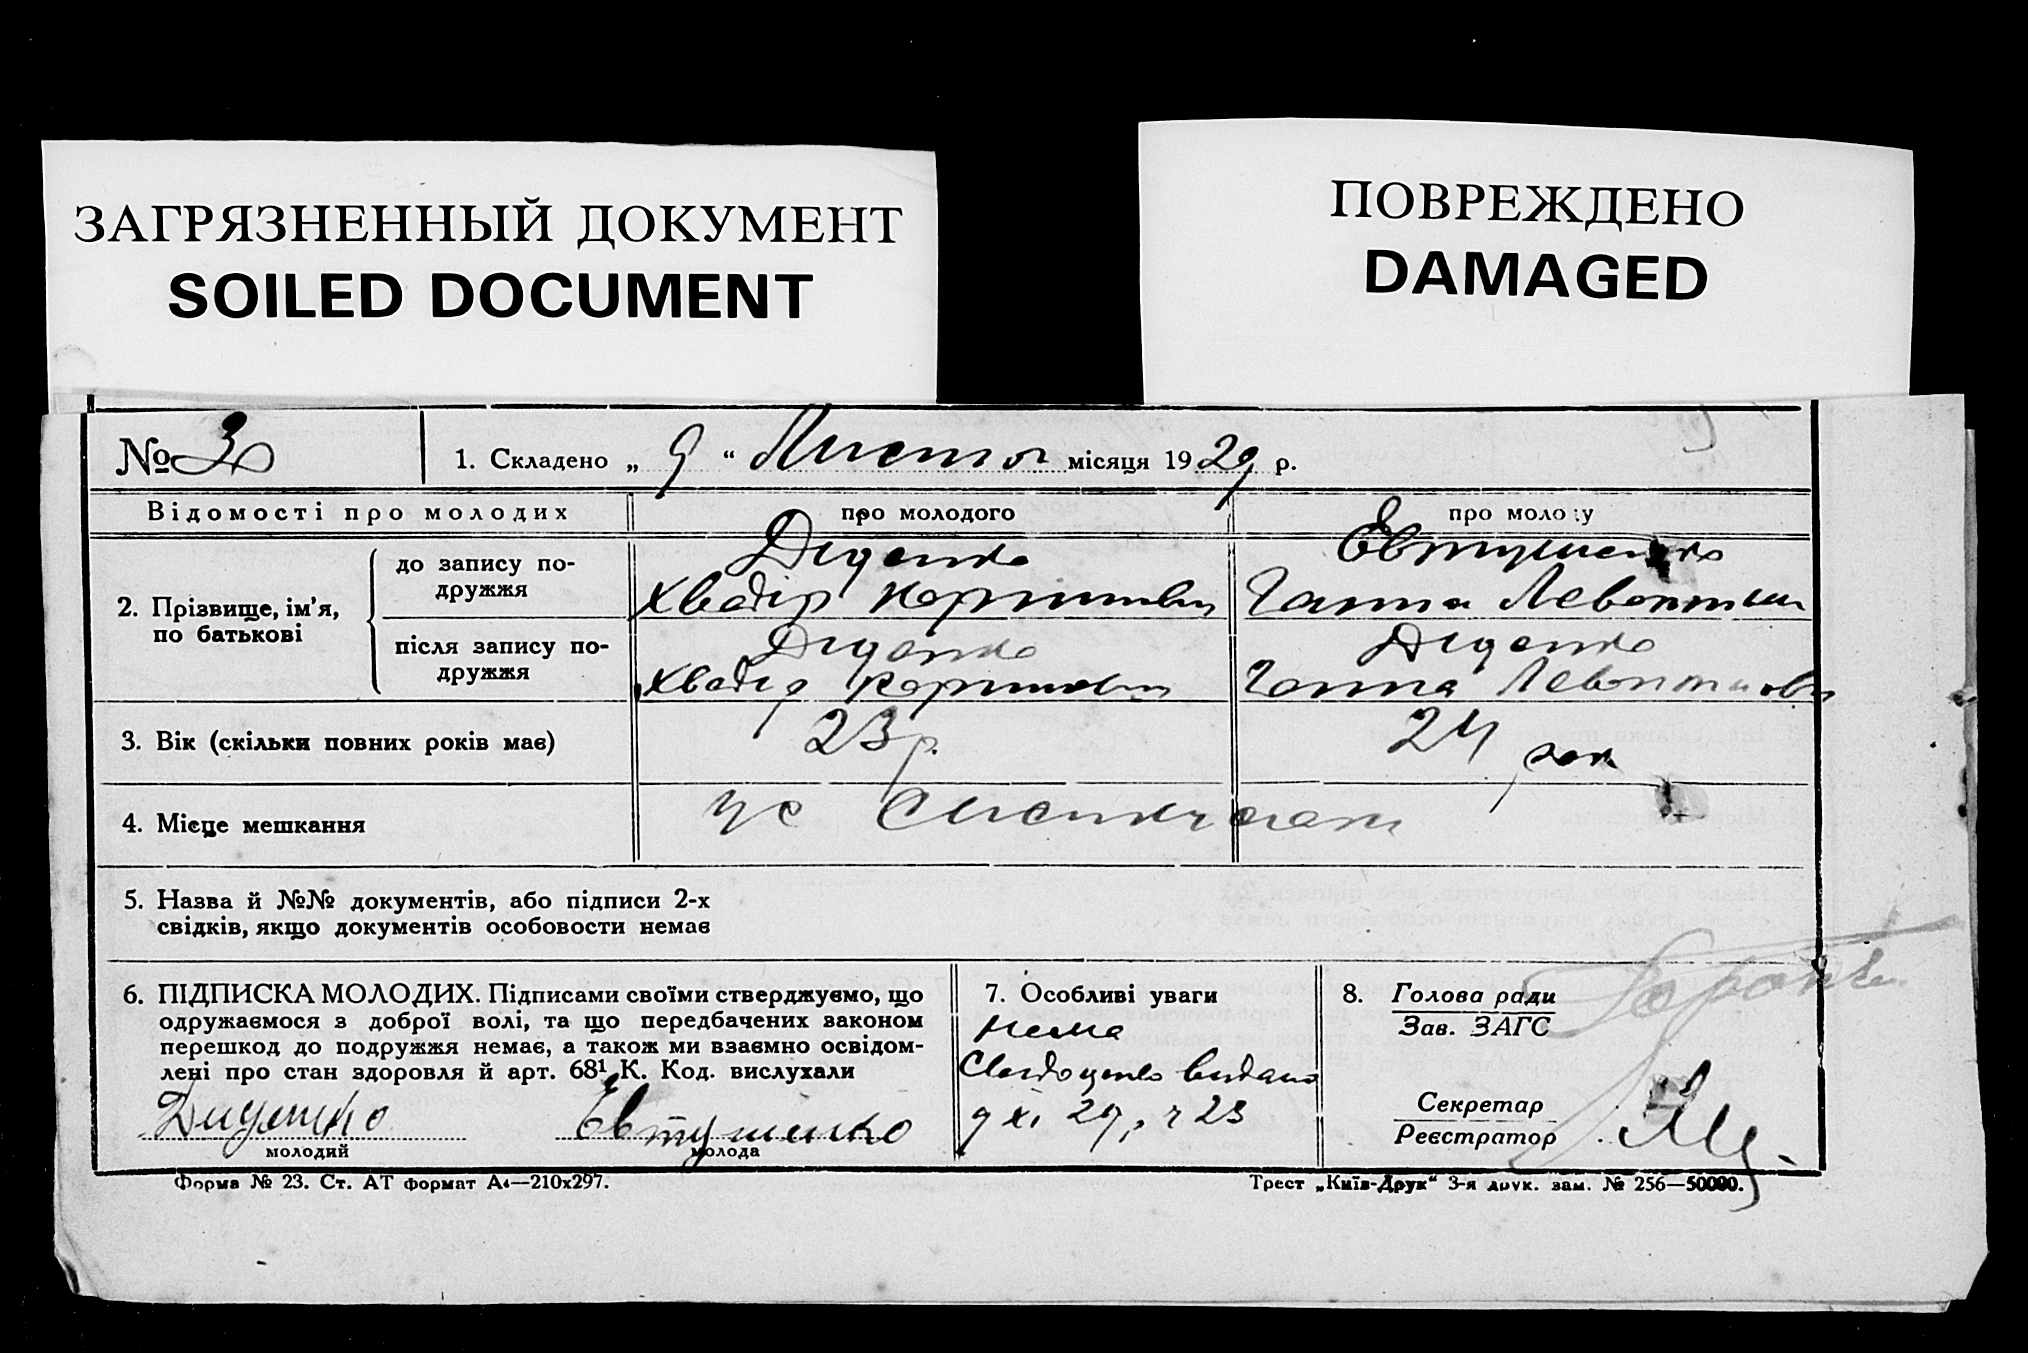 ЗАГРЯЗНЕННЫЙ ДОКУМЕНТ
SOILED DOCUMENT
ПОВРЕЖДЕНО
DAMAGED
№
1. Складено „ 9 “ Листоп місяця 1929 р.
Відомості про молодих
про молодого
про молоду
2. Прізвище, ім'я,
по батькові
до запису по-
дружжя
Діденко
Євтушенко
Ганна
після запису по-
дружжя
Діденко
Діденко
Ганна
3. Вік (скільки повних років має)
23 р.
24 рок
4. Місце мешкання
5. Назва й №№ документів, або підписи 2-х
свідків, якщо документів особовости немає
6. ПІДПИСКА МОЛОДИХ. Підписами своїми стверджуємо, що
одружаємося з доброї волі, та що передбачених законом
перешкод до подружжя немає, а також ми взаємно освідом-
лені про стан здоровля й арт. 68¹ К. Код. вислухали
Диденко
Євтушенко
молодий
молода
7. Особливі уваги
нема
видано
9 XI 29 р ч 23
8. Голова ради
Зав. ЗАГС
Секретар
Реєстратор
Форма № 23. Ст. АТ формат А4—210x297.
Трест „Київ-Друк“ 3-я друк. зам. № 256—50000.